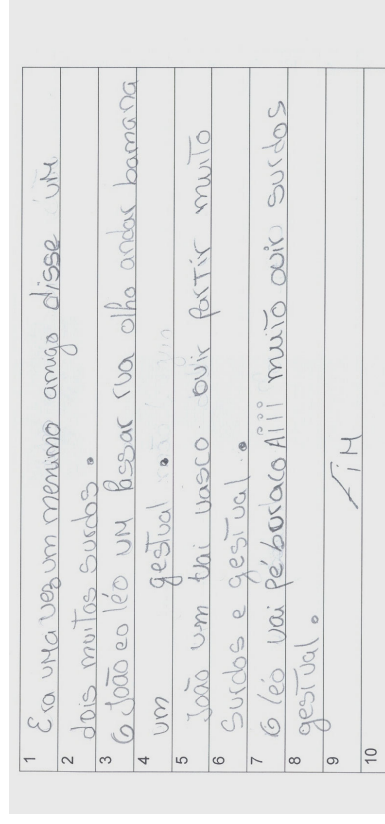 1 Era uma vez um menimo amigo disse um
2 dois muitos surdos.
3 O João eo léo um Passar rua olho andar bamana
4 um gestual.
5 João um vai vasco ouir partir muito
6 Surdos e gestual.
7 O léo vai Pé buraco Aiii muito ouir surdos
8 gestual.
9 FiM
10